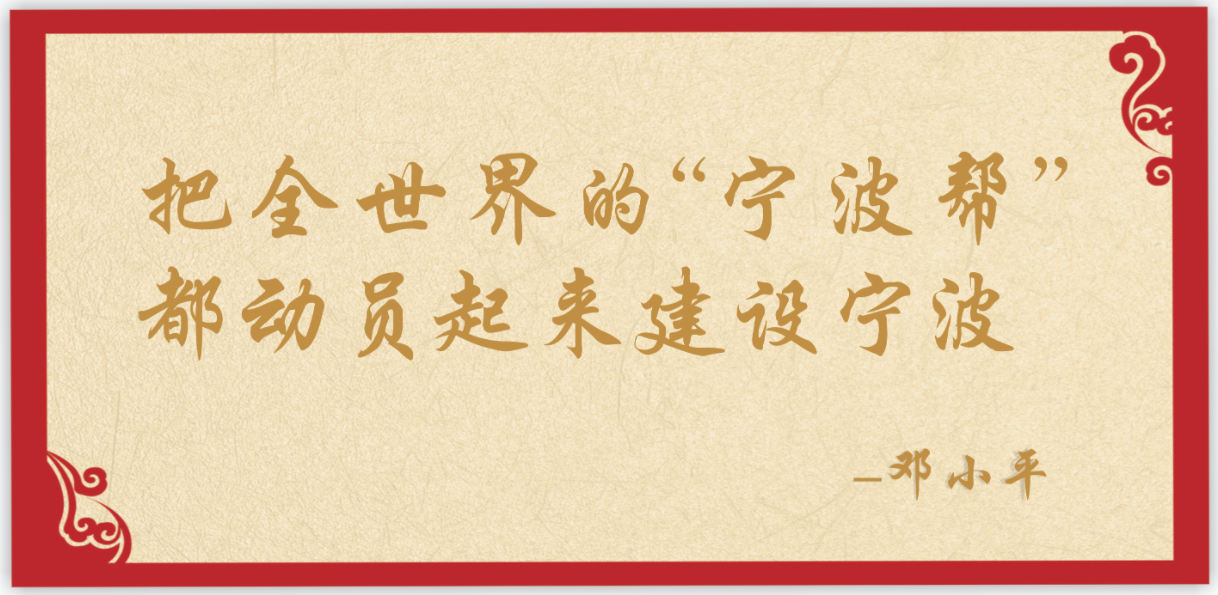 把全世界的“宁波帮”
都动员起来建设宁波
–邓小平